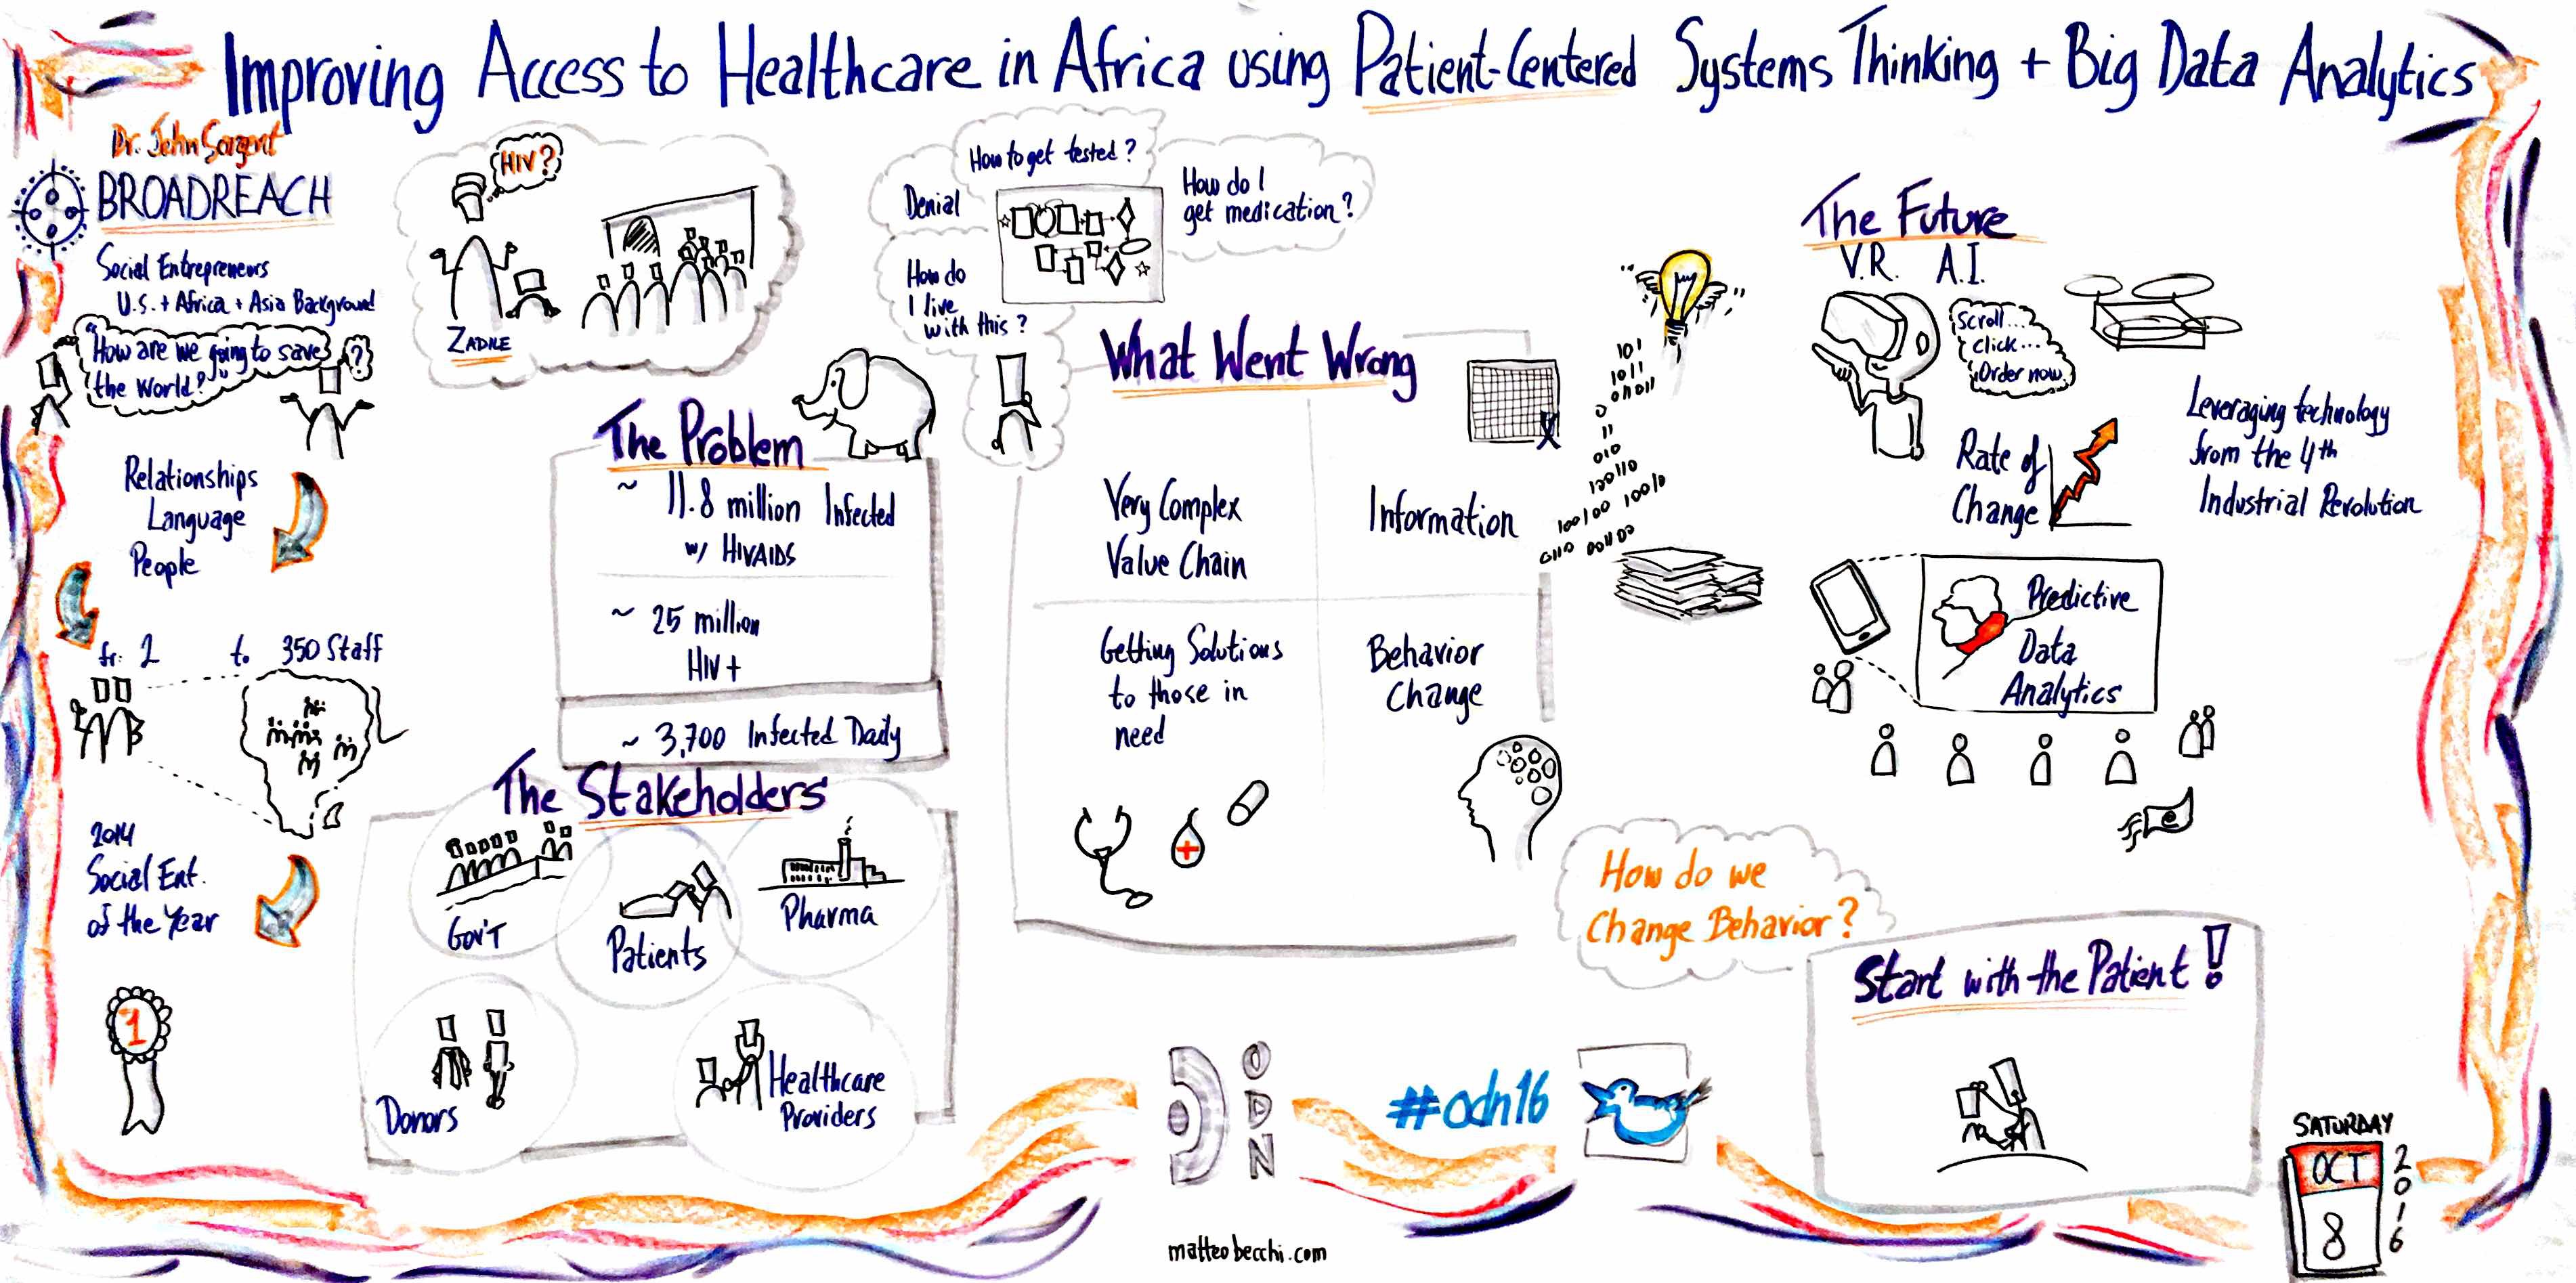 Improving Access to Healthcare in Africa using Patient-Centered Systems Thinking + Big Data Analytics
Dr. John Sargent
BROADREACH
Social Entrepreneurs
U.S. + Africa + Asia Background
"How are we going to save
the World?"
?
Relationships
Language
People
fr. 2 to 350 Staff
2014
Social Ent.
of the Year
1
HIV?
ZADILE
The Problem
~ 11.8 million Infected
w/ HIV/AIDS
~ 25 million
HIV +
~ 3,700 Infected Daily
The Stakeholders
Gov'T
Patients
Pharma
Donors
Healthcare
Providers
How to get tested?
Denial
How do I
get medication?
How do
I live
with this?
What Went Wrong
Very Complex
Value Chain
Information
Getting Solutions
to those in
need
Behavior
Change
101
1011
010011
0
11
010
100110
100100 10010
0110 001100
The Future
V.R. A.I.
Scroll...
click...
Order now
Rate of
Change
Leveraging technology
from the 4th
Industrial Revolution
Predictive
Data
Analytics
How do we
Change Behavior?
Start with the Patient!
ODN
#odn16
matteobecchi.com
SATURDAY
OCT
8
2016